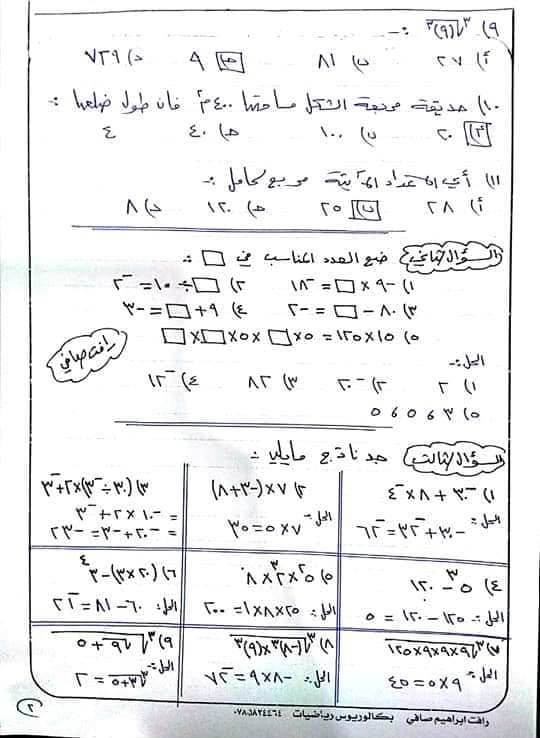 ٩) ∛(٩)٣ :-
أ) ٢٧ ب) ٨١ ج) ٩ د) ٧٢٩
١٠) حديقة مربعة الشكل مساحتها ٤٠٠م٢ فان طول ضلعها :-
أ) ٢٠ ب) ١٠٠ ج) ٤٠ ٤
١١) أي الاعداد الآتية مربع كامل :-
أ) ٢٨ ب) ٢٥ ج) ١٢٠ د) ٨
السؤال الثاني ضع العدد المناسب في □ :-
١) -٩ × □ = -١٨ ٢) □ ÷ ١٠ = -٢
٣) ٨٠ - □ = -٢ ٤) ٩ + □ = -٣
٥) ١٥ × ١٢٥ = ٥ × □ × ٥ × □ × □
رافت صافي
الحل:-
١) ٢ ٢) -٢٠ ٣) ٨٢ ٤) -١٢
٥) ٣ ٥ ٥
السؤال الثالث جد ناتج مايلي :-
١) -٣٠ + ٨ × -٤ ٢) ٧ × (-٣ + ٨) ٣) (٣٠ ÷ -٣) × ٢ + -٣
الحل:- -٣٠ + -٣٢ = -٦٢ الحل:- ٧ × ٥ = ٣٥ = -١٠ × ٢ + -٣
= -٢٠ + -٣ = -٢٣
٤) ٥٣ - ١٢٠ ٥) ٥٢ × ٢٣ × ٨٠ ٦) (٢٠ × ٣) - ٣٤
الحل:- ١٢٥ - ١٢٠ = ٥ الحل:- ٢٥ × ٨ × ١ = ٢٠٠ الحل:- ٦٠ - ٨١ = -٢١
٧) ∛٩×٩×٩×١٢٥ ٨) ∛(-٨)٣×(٩)٣ ٩) ∛√٩+٥
الحل:- ٩ × ٥ = ٤٥ الحل:- -٨ × ٩ = -٧٢ الحل:- ∛٣+٥ = ٢
رافت ابراهيم صافي بكالوريوس رياضيات ٠٧٨٥٨٢٤٤٦٤ ٢